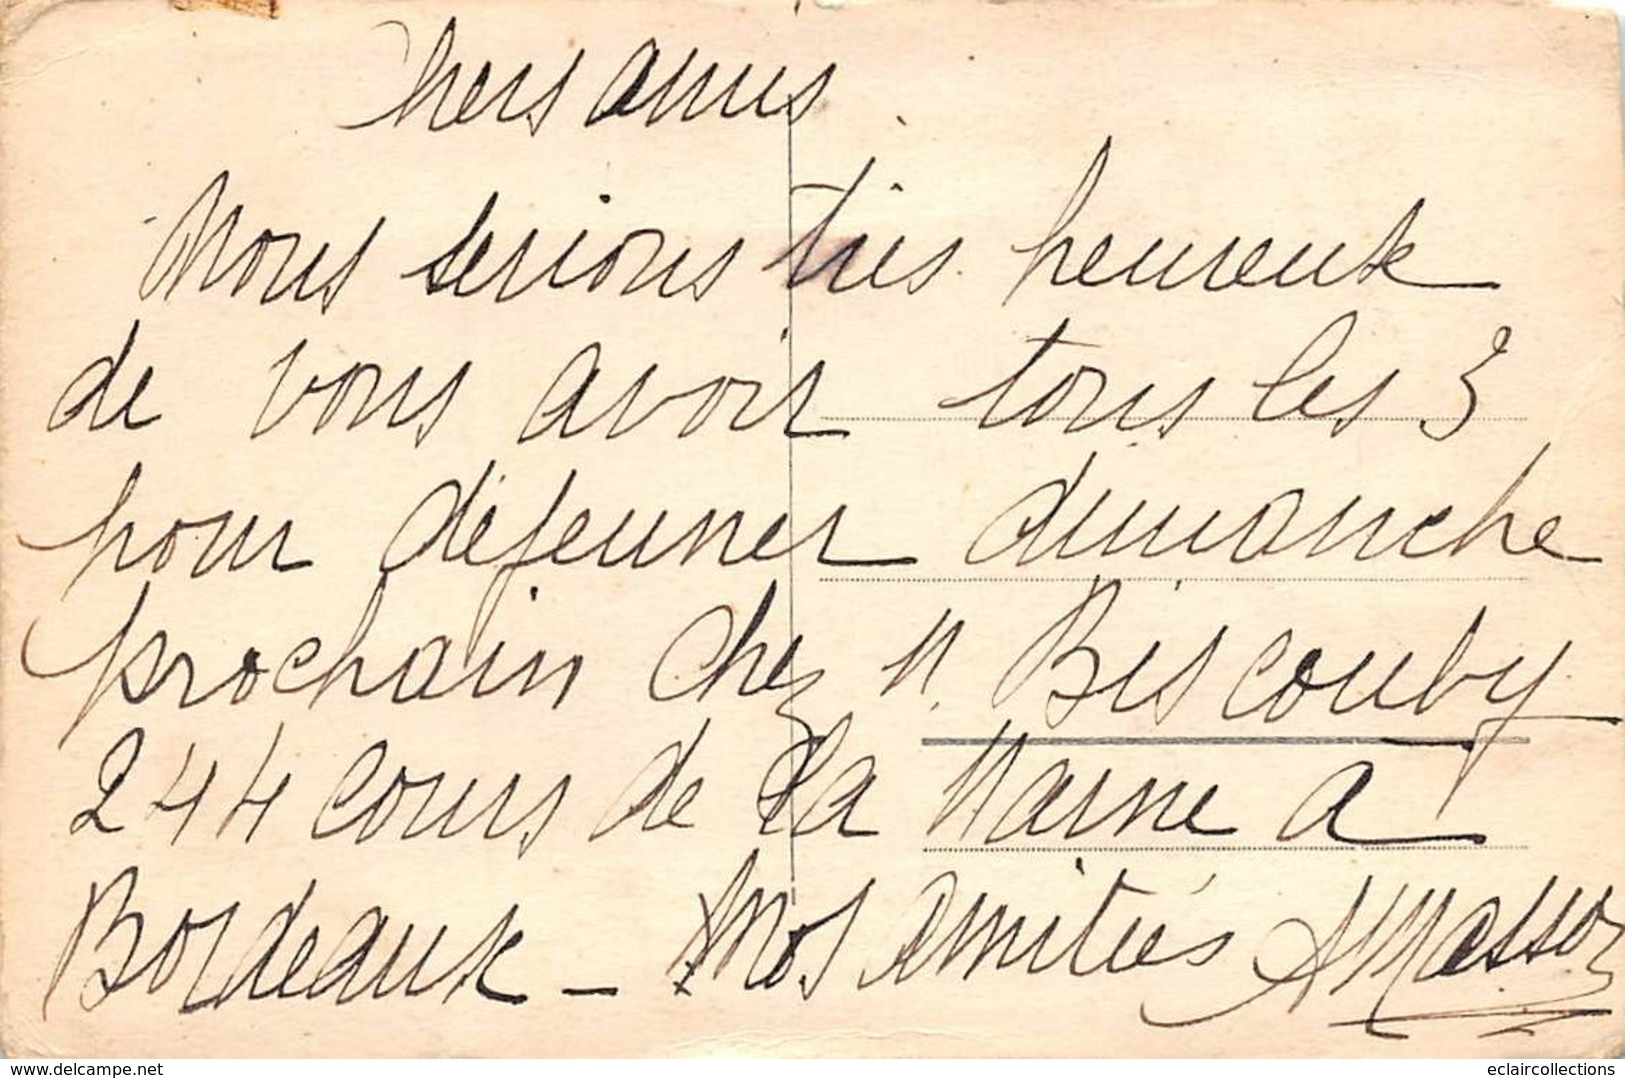 Chers amis
Nous serions très heureux
de vous avoir tous les 3
pour déjeuner dimanche
prochain chez M. Biscouby
244 cours de la Marne à
Bordeaux – Nos Amitiés
www.delcampe.net
eclaircollections